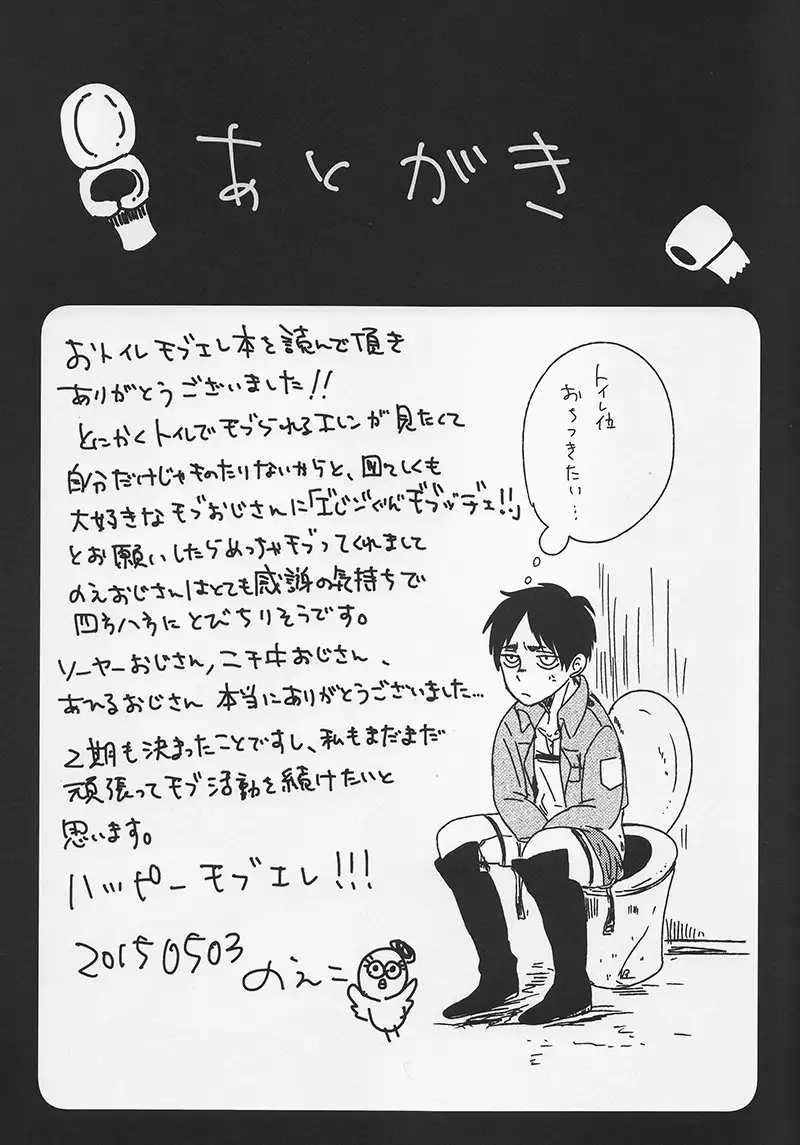 あとがき
おトイレモブエレ本を読んで頂き
ありがとうございました!!
とにかくトイレでモブられるエレンが見たくて
自分だけじゃものたりないからと、図々しくも
大好きなモブおじさんに「エレンくんモブッデェ!!」
とお願いしたらめっちゃモブってくれまして
のえおじさんはとても感謝の気持ちで
四方八方にとびちりそうです。
ソーヤーおじさん、ニキ中おじさん、
あひるおじさん 本当にありがとうございました…
2期も決まったことですし、私もまだまだ
頑張ってモブ活動を続けたいと
思います。
ハッピーモブエレ!!!
20150503 のえこ
トイレ位
おちつきたい…